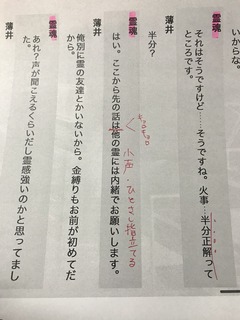 いからな。
霊魂
それはそうですけど……そうですね。火事…半分正解って
ところです。
薄井
半分？
小声・ひとさし指立てる
霊魂
はい。ここから先の話は他の霊には内緒でお願いします。
薄井
俺別に霊の友達とかいないから。金縛りもお前が初めてだ
から。
霊魂
あれ？声が聞こえるくらいだし霊感強いのかと思ってまし
た。